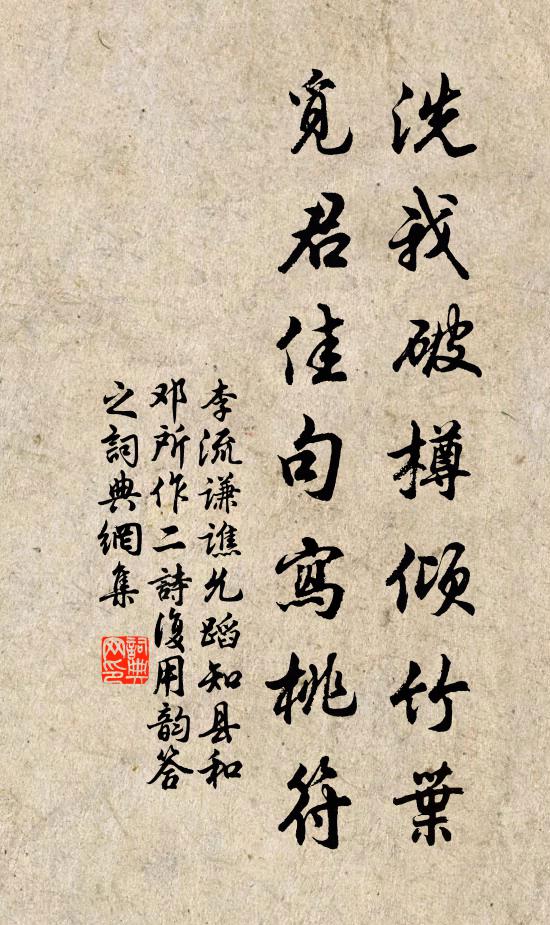 洗我破樽倾竹葉
覓君佳句寫桃符
李流谦谯允蹈知县和
邓所作二詩復用韵答
之詞典網集
詞典
网印